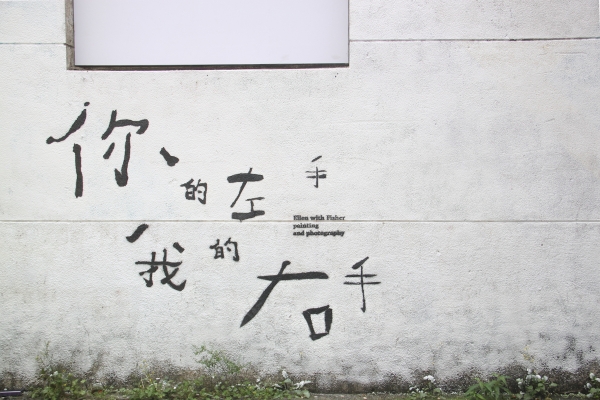 你的左手
Ellen with Fisher
painting
and photography
我的右手